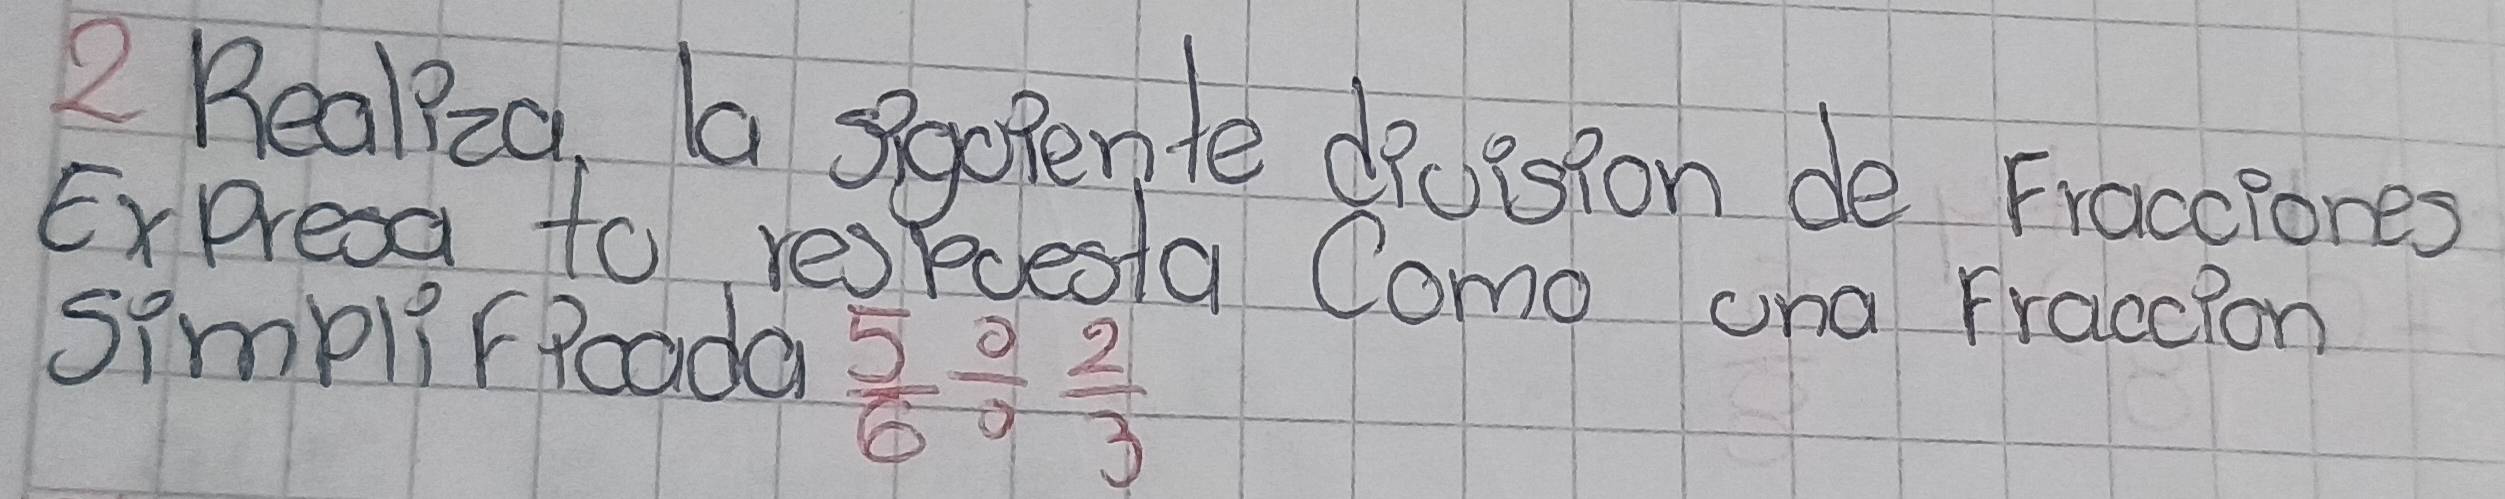 2 Realiza, la siguiente division de Fracciones
Expresa tu respuesta Como una Fraccion
Simplificada 5/6 ÷ 2/3